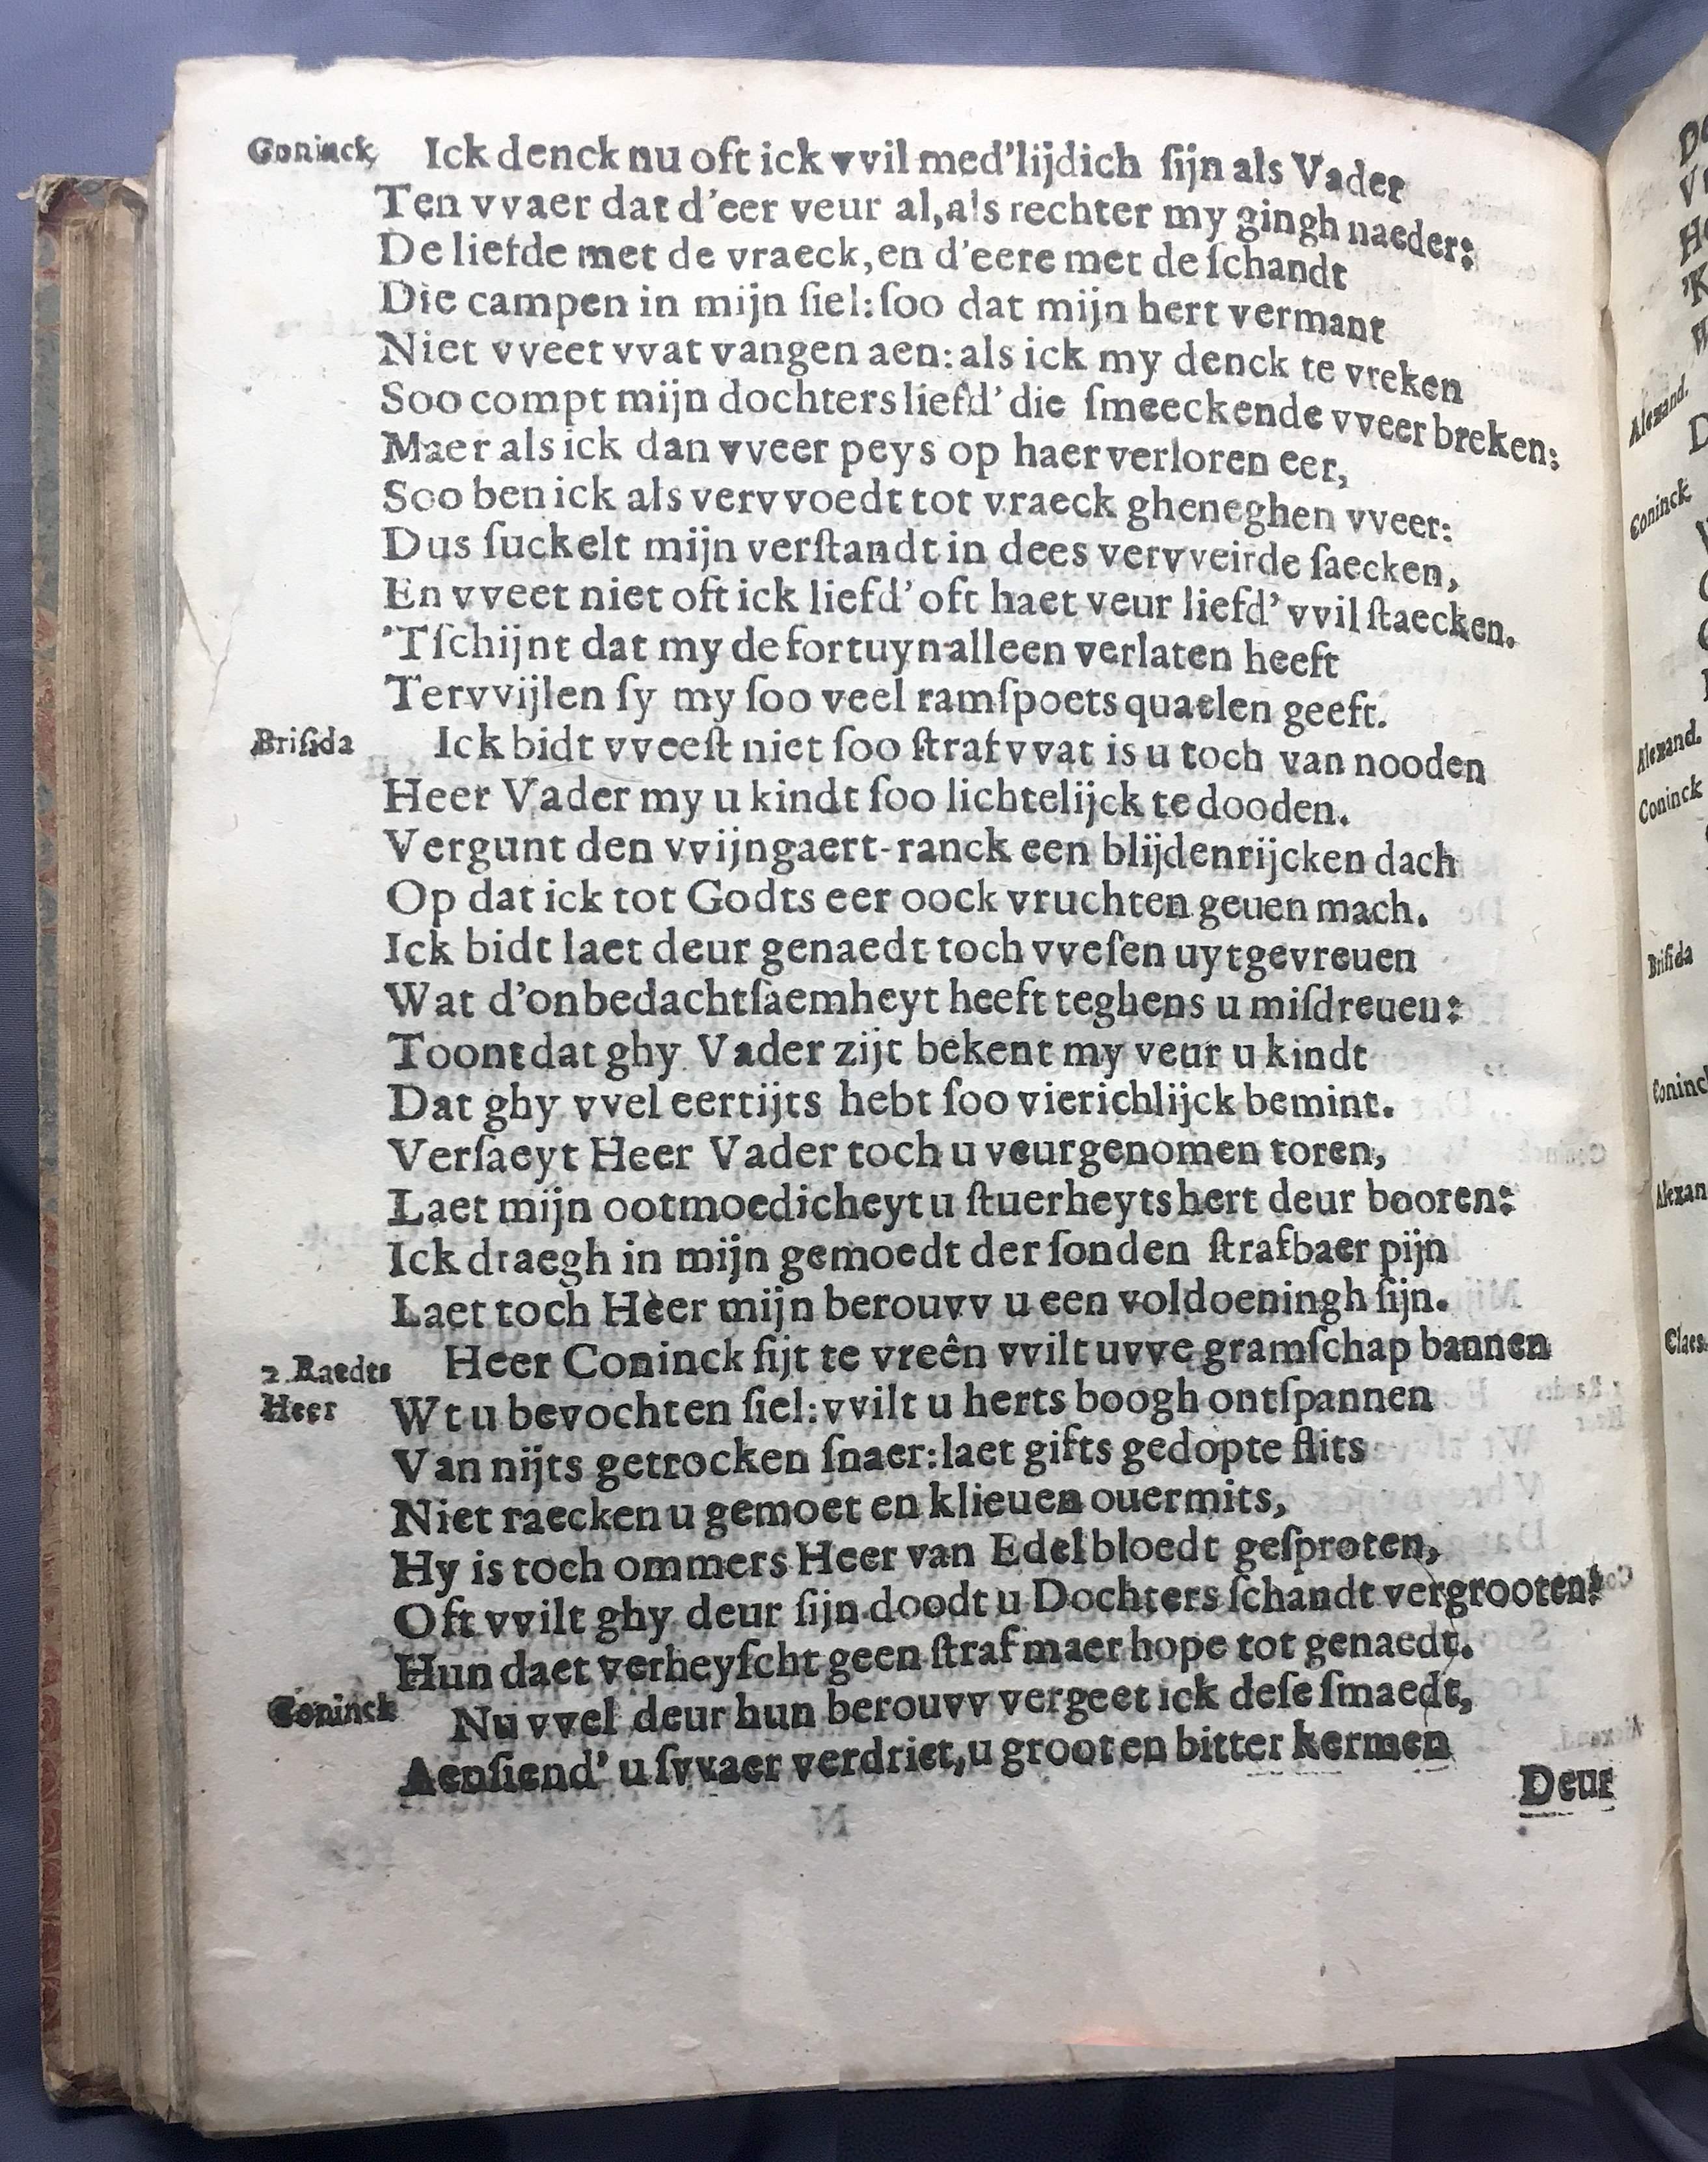 Coninck Ick denck nu oft ick vvil med'lijdich ſijn als Vader
Ten vvaer dat d'eer veur al,als rechter my gingh naeder:
De liefde met de vraeck,en d'eere met de ſchandt
Die campen in mijn ſiel:ſoo dat mijn hert vermant
Niet vveet vvat vangen aen:als ick my denck te vreken
Soo compt mijn dochters liefd' die ſmeeckende vveer breken:
Maer als ick dan vveer peys op haer verloren eer,
Soo ben ick als vervvoedt tot vraeck gheneghen vveer:
Dus ſuckelt mijn verſtandt in dees vervveirde ſaecken,
En vveet niet oft ick liefd' oft haet veur liefd' vvil ſtaecken.
'Tſchijnt dat my de fortuyn alleen verlaten heeft
Tervvijlen ſy my ſoo veel ramſpoets quaelen geeft.
Briſida Ick bidt vveeſt niet ſoo ſtraf vvat is u toch van nooden
Heer Vader my u kindt ſoo lichtelijck te dooden.
Vergunt den vvijngaert-ranck een blijdenrijcken dach
Op dat ick tot Godts eer oock vruchten geuen mach.
Ick bidt laet deur genaedt toch vveſen uytgevreuen
Wat d'onbedachtſaemheyt heeft teghens u miſdreuen:
Toont dat ghy Vader zijt bekent my veur u kindt
Dat ghy vvel eertijts hebt ſoo vierichlijck bemint.
Verſaeyt Heer Vader toch u veurgenomen toren,
Laet mijn ootmoedicheyt u ſtuerheyts hert deur booren:
Ick draegh in mijn gemoedt der ſonden ſtrafbaer pijn
Laet toch Heer mijn berouvv u een voldoeningh ſijn.
2. Raedts Heer Coninck ſijt te vreên vvilt uvve gramſchap bannen
Heer Wt u bevochten ſiel:vvilt u herts boogh ontſpannen
Van nijts getrocken ſnaer:laet gifts gedopte flits
Niet raecken u gemoet en klieuen ouermits,
Hy is toch ommers Heer van Edel bloedt geſproten,
Oft vvilt ghy deur ſijn doodt u Dochters ſchandt vergrooten?
Hun daet verheyſcht geen ſtraf maer hope tot genaedt.
Coninck Nu vvel deur hun berouvv vergeet ick deſe ſmaedt,
Aenſiend' u ſvvaer verdriet,u groot en bitter kermen
Deur
Alexand.
Coninck
Alexand.
Coninck
Briſida
Coninck
Alexan
Claes.